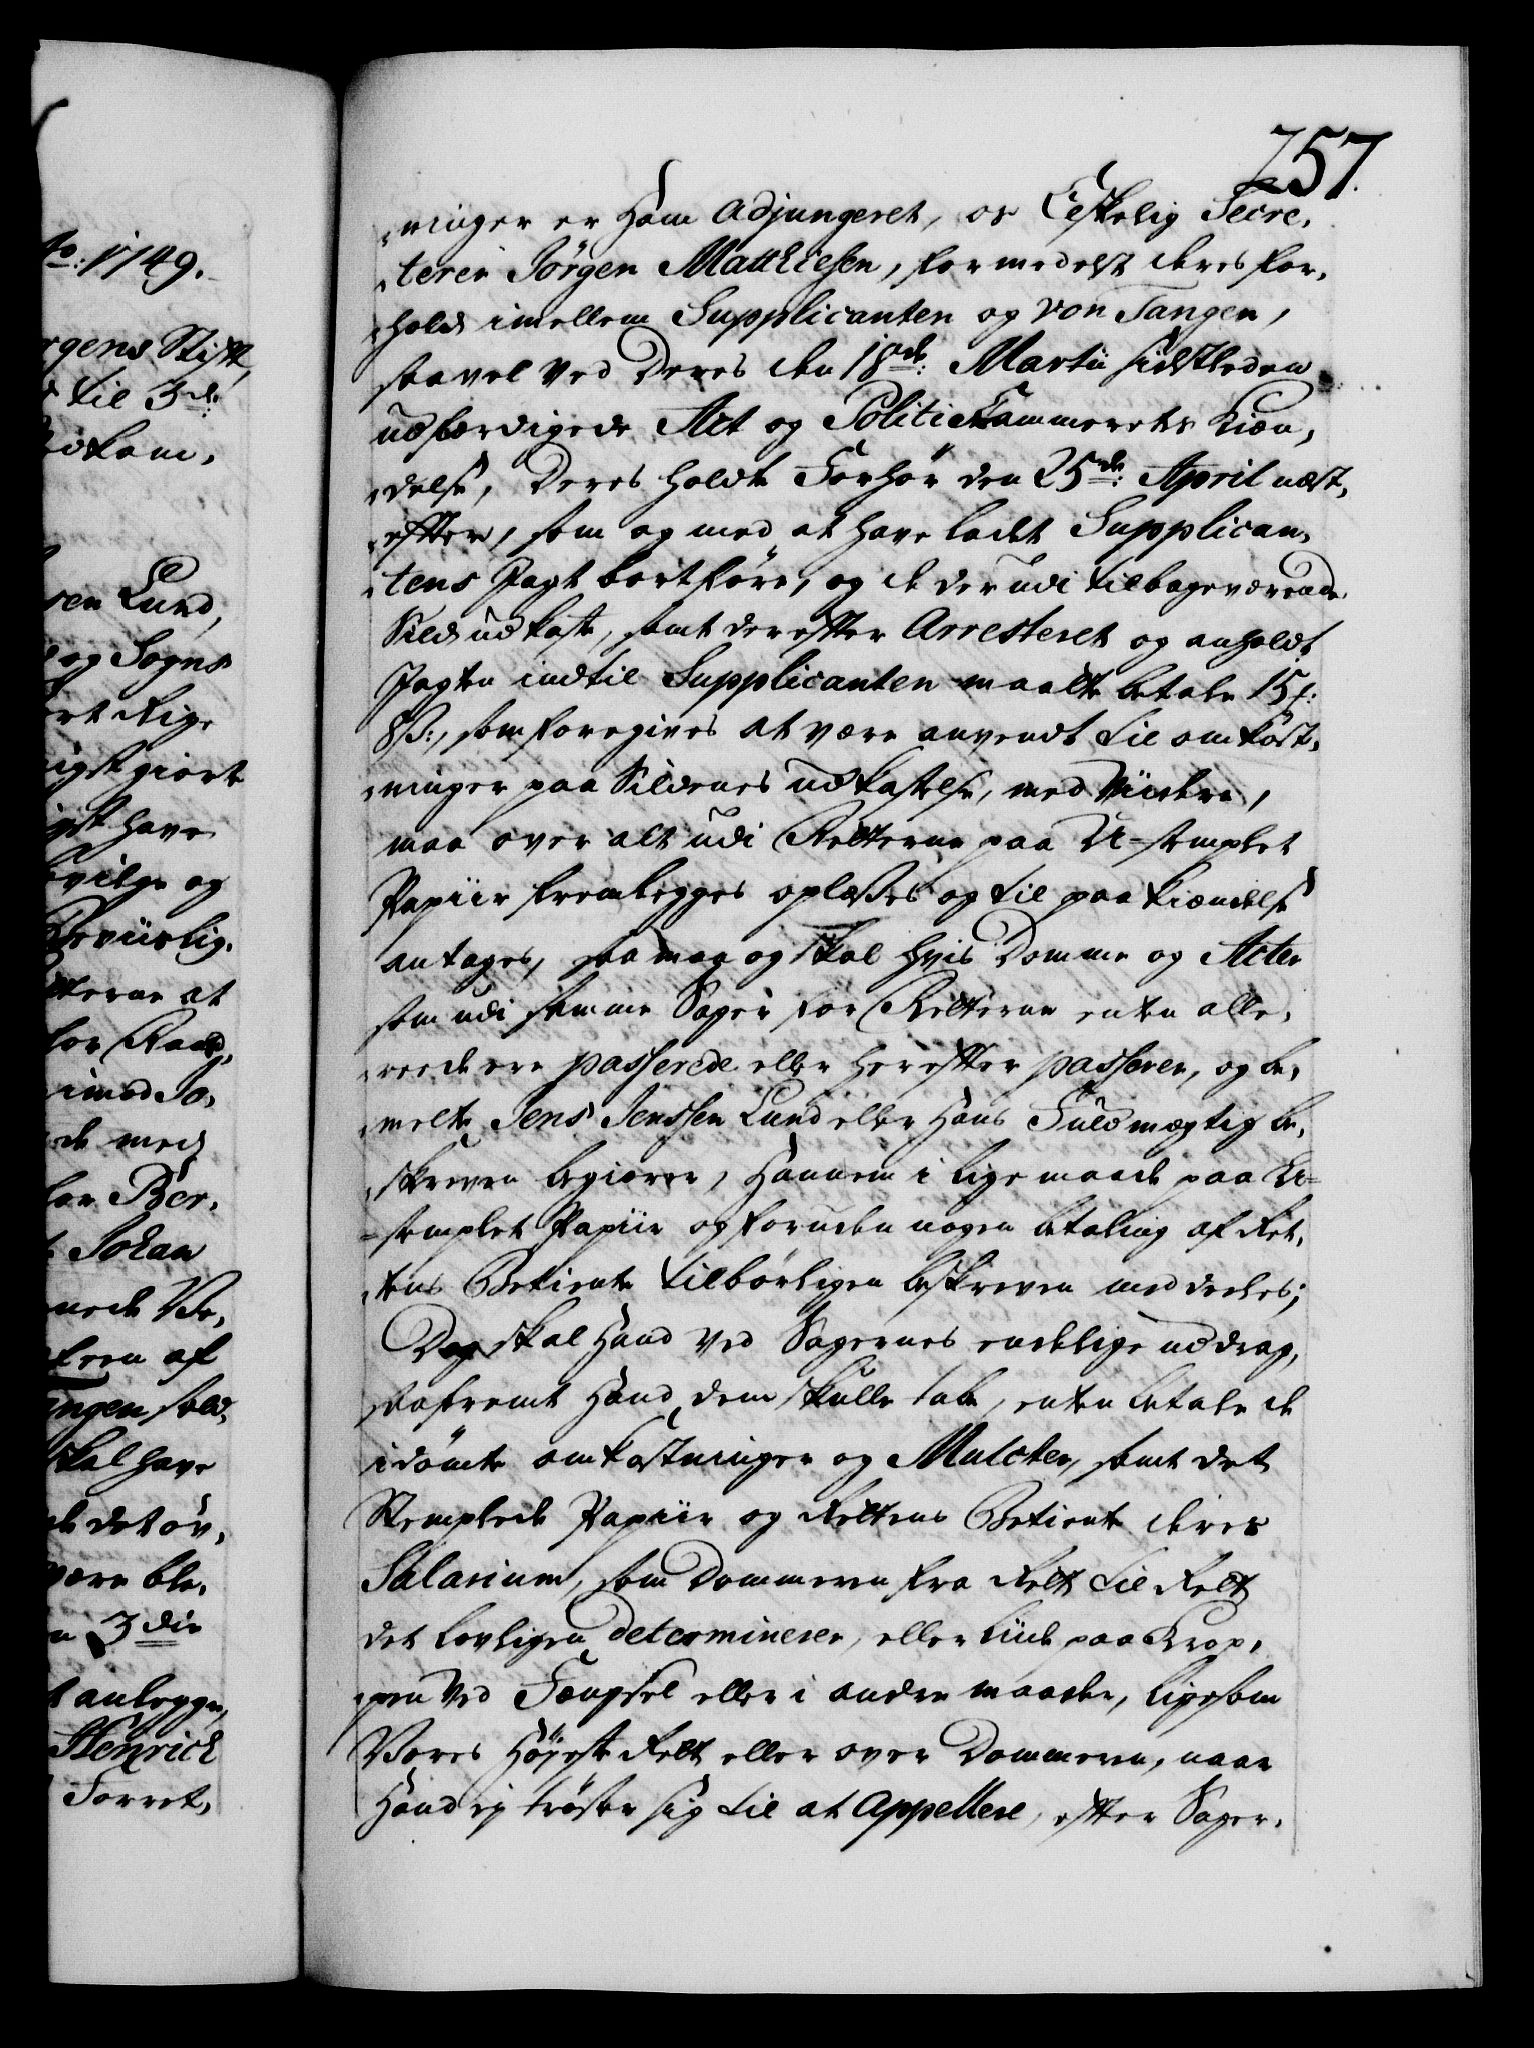 257.
ninger er ham adjungeret, os Elskelig Secre,
terer Jörgen Matthiesen, formedelst deres for,
hold imellem Supplicanten og von Tangen,
saavel ved deres den 18de: Martii sidstleden
udfærdigede Act og Politie Kammerets Kien,
delse, deres holdte Forhör den 25de: April næst,
efter, som og med at have ladet Supplican,
tens Jagt bortföre, og de der udi tilbageværende
Sild udkaste, samt derefter Arresteret og anholdt
Jagten indtil Supplicanten maatte betale 15
8 ß:, som foregives at være anvendt til omkost,
ninger paa Sildenes udkastelse, med Viidere,
maa over alt udi Retterne paa U-stemplet
Papiir fremlegges oplæses og til paakiendelse
antages, saa maa og skal hvis Domme og Acter
som udi samme Sager for Retterne enten alle,
reede ere passerede eller herefter passerer, og be,
melte Jens Jenssen Lund eller hans Fuldmægtig be,
skreven begierer, hannem i lige maade paa U=
=stemplet Papiir og foruden nogen betaling af Ret,
tens Betiente tilbörligen beskreven meddeeles;
Dog skal hand ved Sagernes endelige uddrag,
saafremt hand dem skulle tabe, enten betale de
idömte omkostninger og Mulcter, samt det
Stemplede Papiir og Rettens Betiente deres
Salarium, som Dommeren fra Rett til Rett
det lovligen determinerer, eller liide paa Krop,
pen ved Fængsel eller i andre maader, ligesom
Vores Höyeste Rett eller over Dommeren, naar
hand ey tröster sig til at appellere, efter Sager,
to: 1749.
rgens Stift,
til 3de:
sen Lund,
og Sogns
rt Rige
igst giort
igst have
vilge og
Beviislig,
tterne at
for Raad,
imod Jo,
de med
for Ber,
Johan
nede Ve,
teen af
ngen
skal have
de det öv,
være ble,
n 3die
t anlegge,
Henrich
Forret,